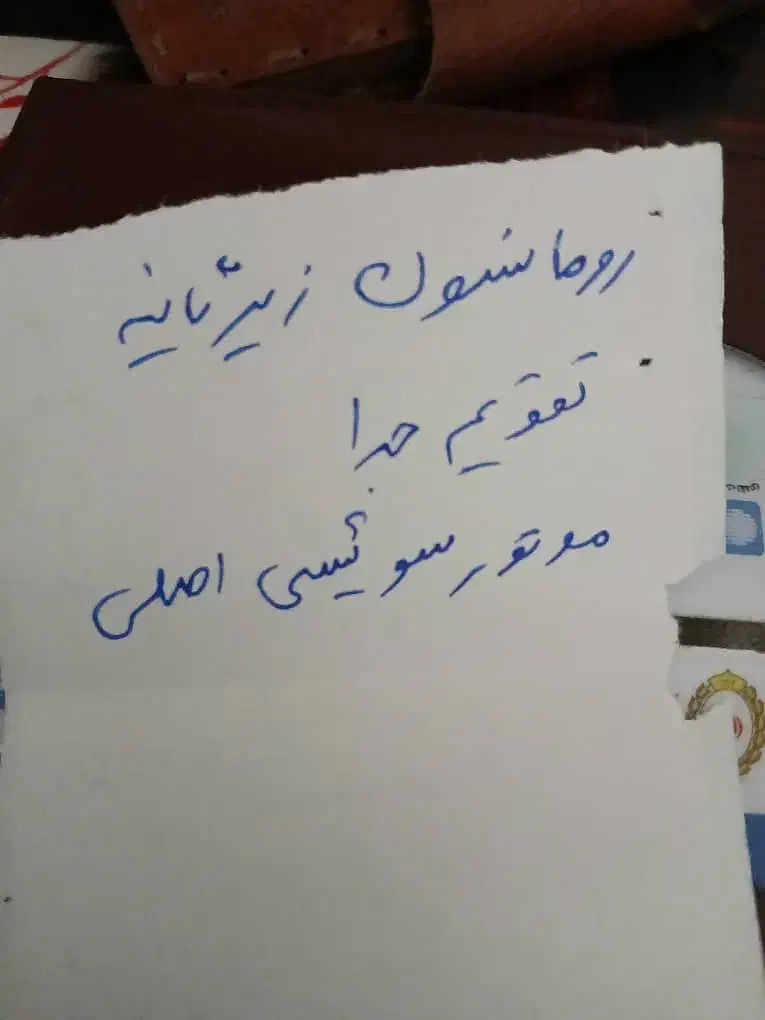 روماسنون زیر ثانیه
تقویم جدا
موتور سوئیسی اصلی